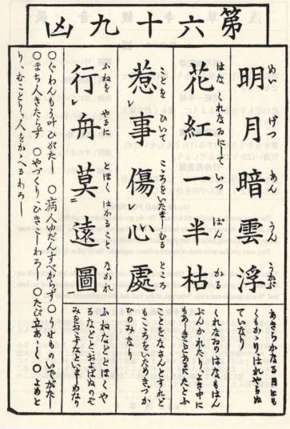 第六十九凶
めい げつ あん うん うかぶ
明月暗雲浮
あきらかなる月も
くもかゝりはれやらぬ
ていなり
はな くれなゐにして いつ ぱん かる
花紅一半枯
くれなゐのはなもはん
ぶんかれたり、よき中に
もあしきことあるたとふ
ことを ひいて こころをいたましむる ところ
惹事傷心處
ことをなさんとすれど
もこころをいためきつか
ひのみなり
ふねを やるに とほく はかること なかれ
行舟莫遠圖
ふねなどとほくや
るなどと、およばぬのぞ
みをおこすなといましめなり
○ぐわんもう叶ひがたし ○病人ゆだんすべからず ○うせものいでがたし
○まち人きたらず ○やづくり、ひきこしわろし ○たび立あしし ○よめと
り、むことり、人をかゝへるわろし